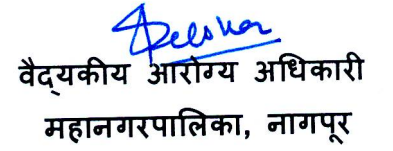 वैद्यकीय आरोग्य अधिकारी
महानगरपालिका, नागपूर